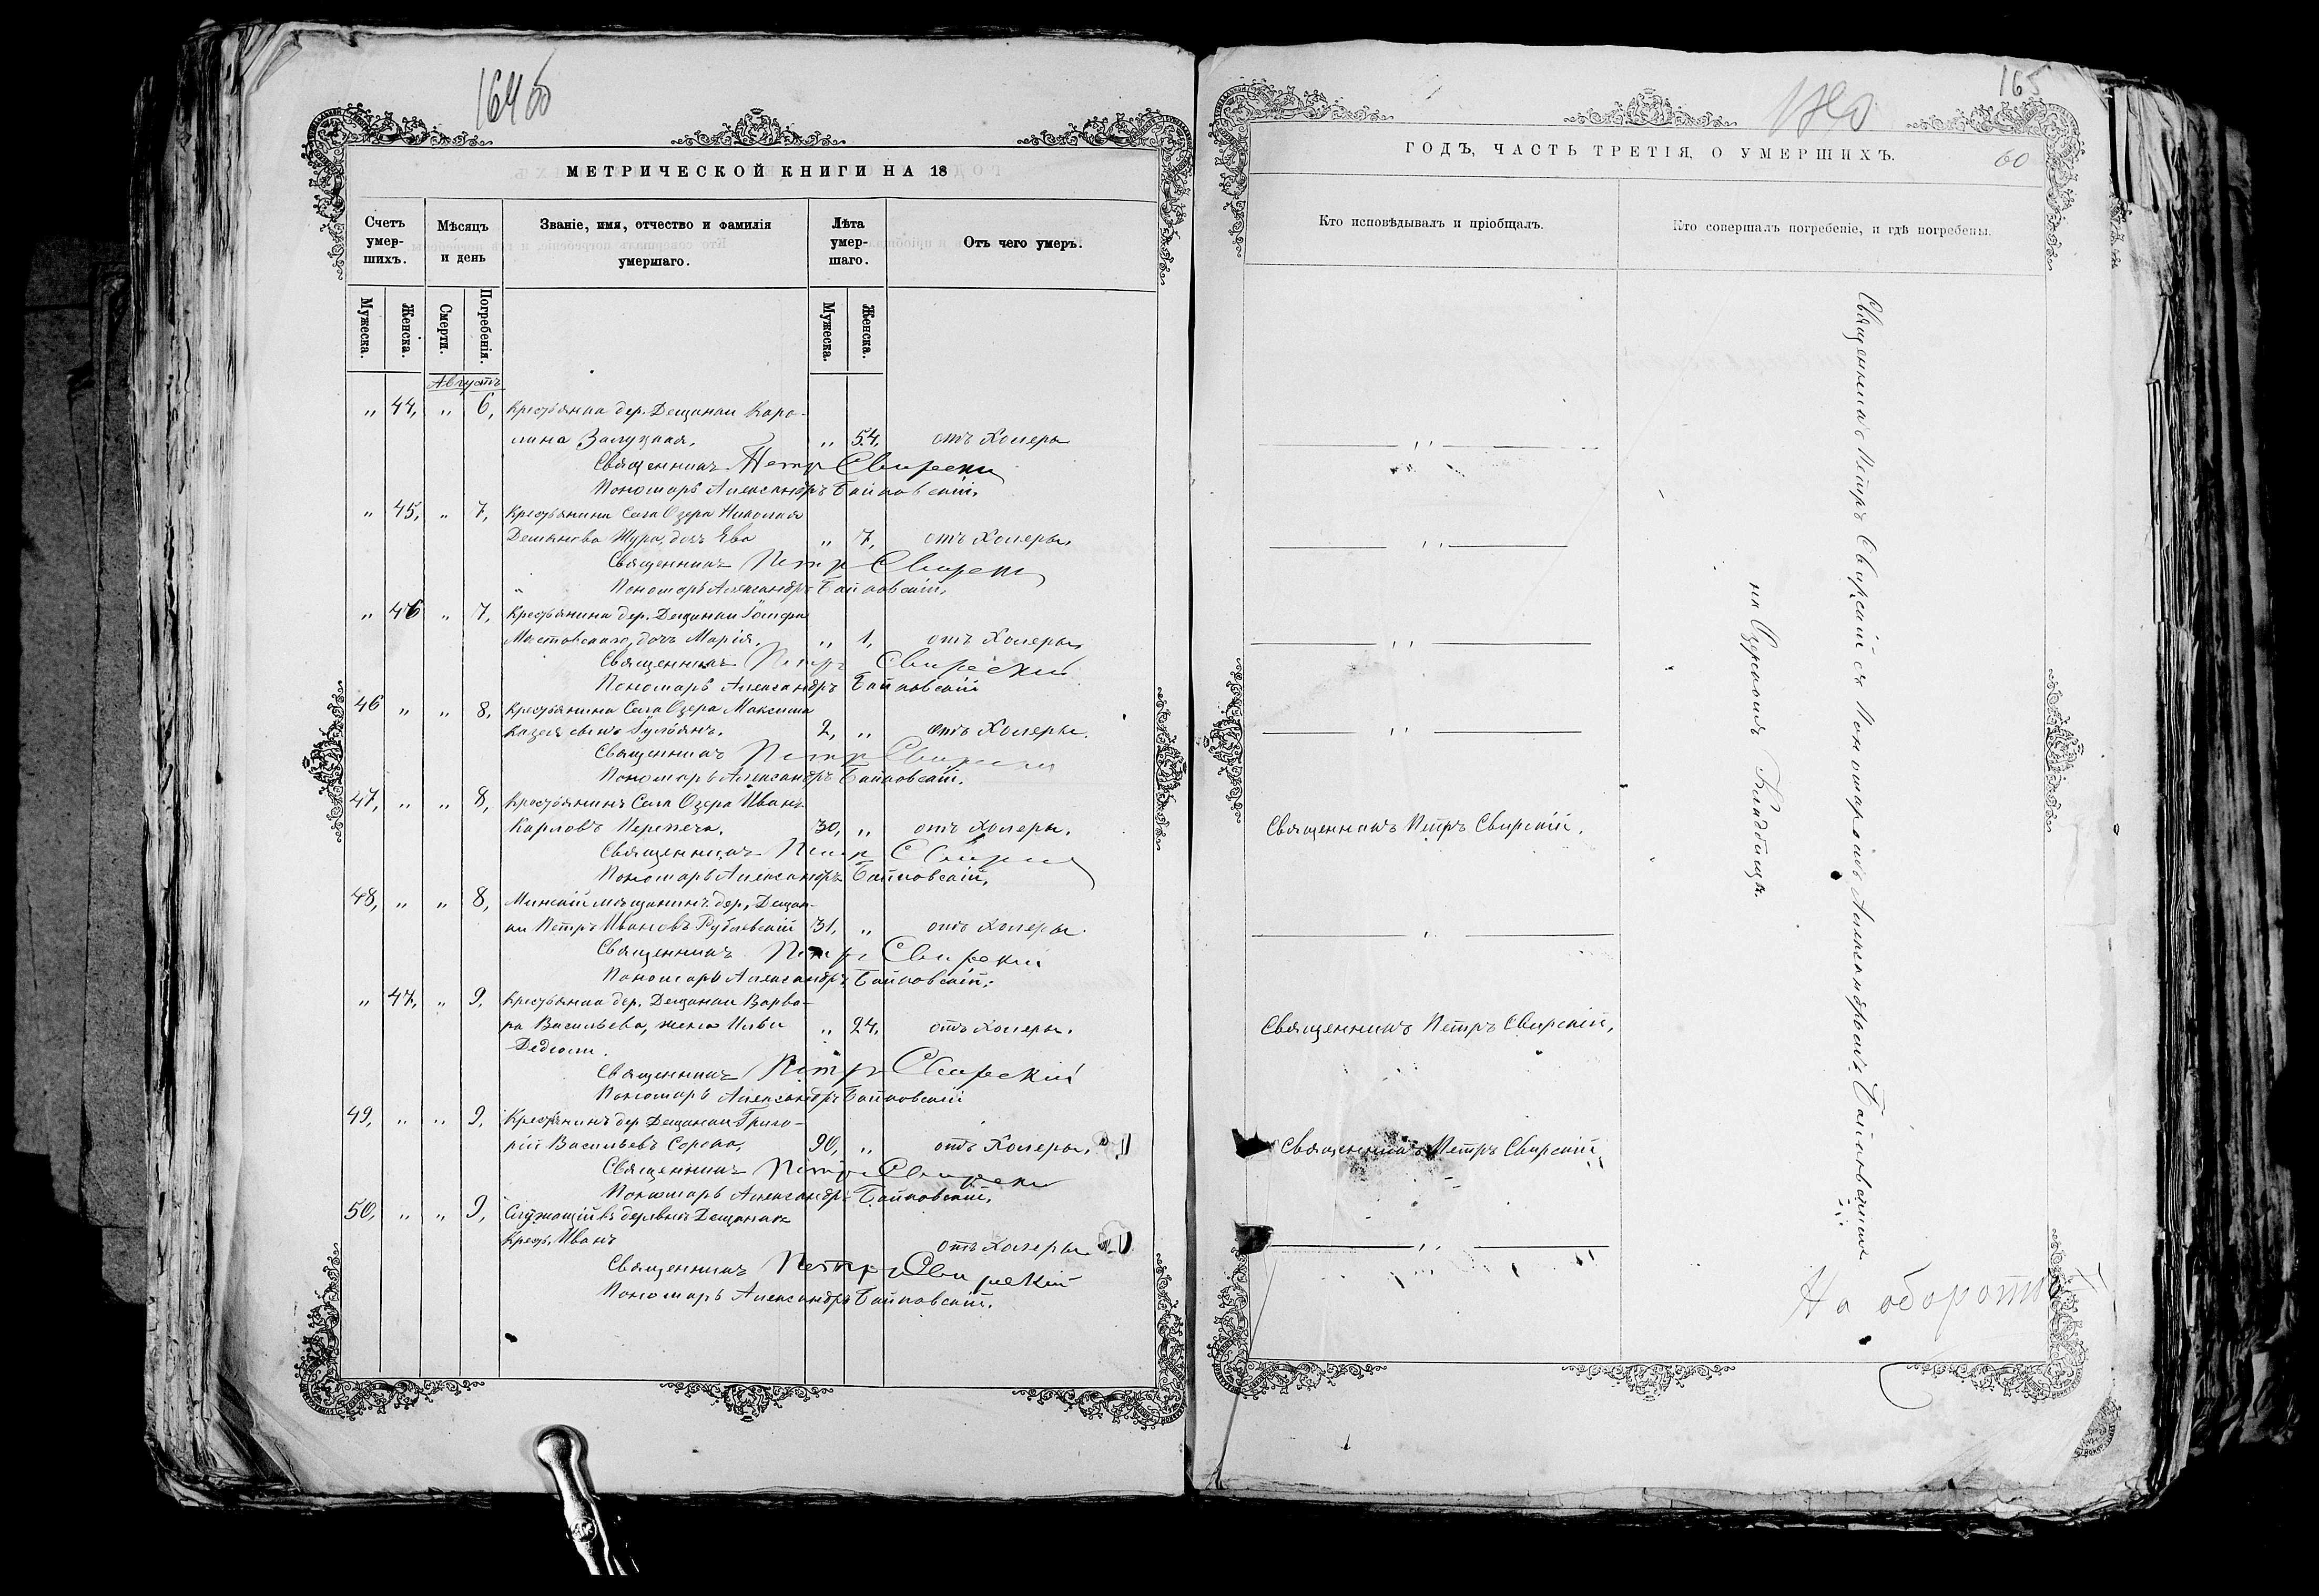 164об
МЕТРИЧЕСКОЙ КНИГИ НА 18
Счетъ умер-шихъ.
Мѣсяцъ и день
Званіе, имя, отчество и фамилія умершаго.
Лѣта умер-шаго.
Отъ чего умеръ.
Мужеска.
Женска.
Смерти.
Погребенія.
Мужеска.
Женска.
Августъ
„ 44, „ 6, Крестьянка дер. Дещанки Каро-
лина Залуцкая, „ 54, отъ Холеры
Священникъ Петръ Свирски
Пономарь Александръ Байковскій,
„ 45, „ 7, Крестьянина Села Озера Николая
Демянова Жура, дочь Ева „ 7, отъ Холеры,
Священникъ Петр Свирски
Пономарь Александръ Байковскій,
„ 46 „ 7, Крестьянина дер. Дещанки
Мостовскаго, дочь Марія, „ 1, отъ Холеры,
Священникъ Петръ Свирский
Пономарь Александръ Байковскій
46 „ „ 8, Крестьянина Села Озера Максима
сынъ 2, „ отъ Холеры.
Священникъ Петръ Свирски
Пономарь Александръ Байковскій.
47, „ „ 8, Крестьянинъ Села Озера Иванъ
Карповъ Перепеча, 30, „ отъ Холеры,
Священникъ Петр Свирски
Пономарь Александръ Байковскій,
48, „ „ 8, Минскій мѣщанинъ дер, Дещан-
ки Петръ Ивановъ 31, „ отъ Холеры.
Священникъ Петръ Свирский
Пономарь Александръ Байковскій,
„ 47, „ 9, Крестьянка дер. Дещанки Варва-
ра Васильева, жена Ильи „ 24, отъ Холеры,
Священникъ Петръ Свирский
Пономарь Александръ Байковскій
49, „ „ 9, Крестьянинъ дер Дещанки Григо-
рій Васильевъ Сорока, 90, „ отъ Холеры,
Священникъ Петръ Свирски
Пономарь Александръ Байковскій,
50, „ „ 9, Служащій въ деревнѣ Дещанкахъ
Крест, Иванъ отъ Холеры
Священникъ Петръ Свирский
Пономарь Александръ Байковскій,
165
60
ГОДЪ, ЧАСТЬ ТРЕТІЯ, О УМЕРШИХЪ.
Кто исповѣдывалъ и пріобщалъ.
Кто совершалъ погребеніе, и гдѣ погребены.
Священникъ Петръ Свирскій,
Священникъ Петръ Свирскій,
Священникъ Петръ Свирскій,
Священникъ Петръ Свирскій съ Пономаромъ Александромъ Байковскимъ
на Озерскомъ Кладбищѣ.
На оборотъ